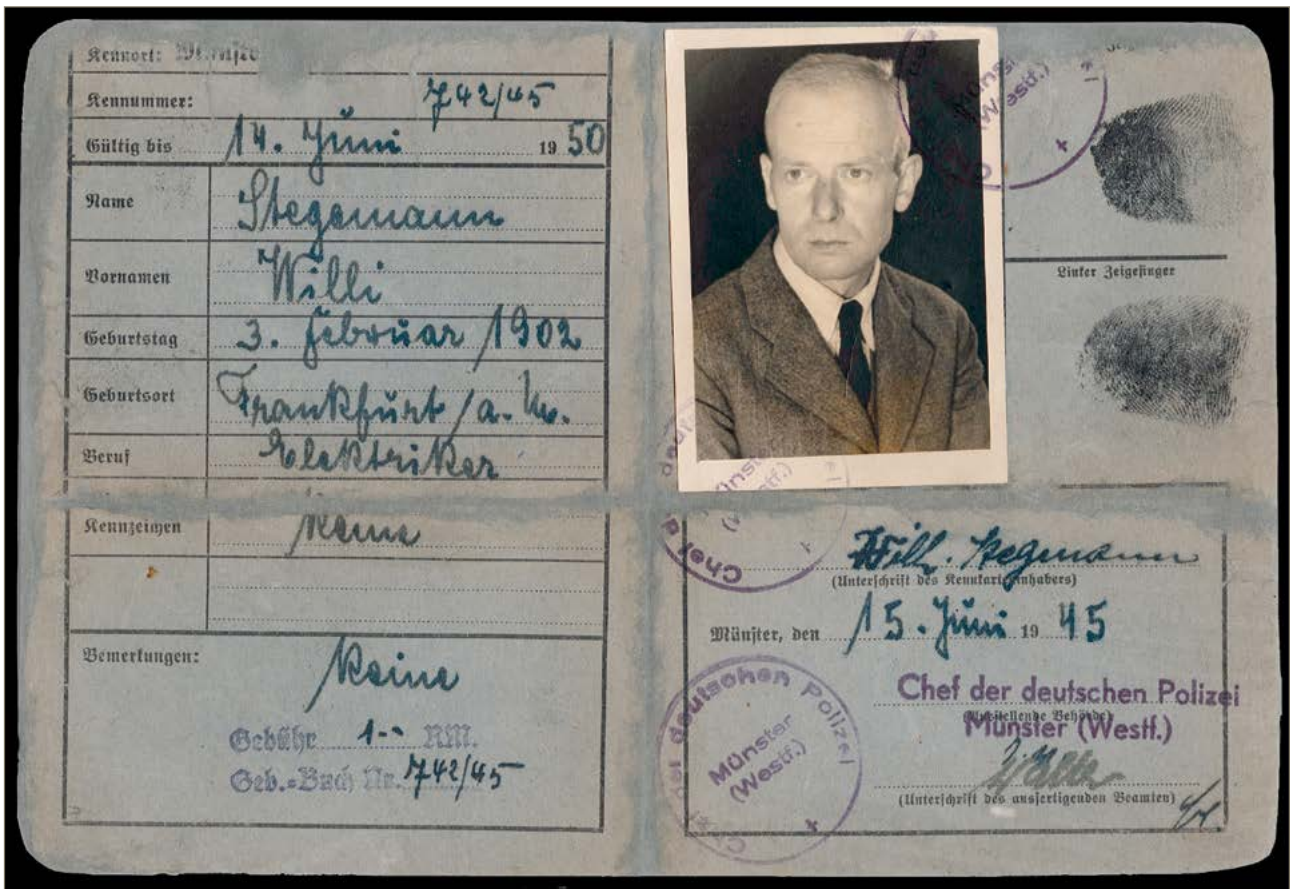 Kennort:
Kennummer: 742/45
Gültig bis 14. Juni 1950
Name Stegemann
Vornamen Willi
Geburtstag 3. Februar 1902
Geburtsort Frankfurt/a. M.
Beruf Elektriker
Kennzeichen Keine
Bemerkungen: Keine
Gebühr 1.-- RM.
Geb.=Buch Nr. 742/45
Münster
(Westf.)
Linker Zeigefinger
Chef der deutschen Polizei
Münster
(Westf.)
Willi. Stegemann
(Unterschrift des Kennkarteninhabers)
Münster, den 15. Juni 1945
Chef der deutschen Polizei
(Ausstellende Behörde)
Münster (Westf.)
(Unterschrift des ausfertigenden Beamten)
Chef der deutschen Polizei
Münster
(Westf.)